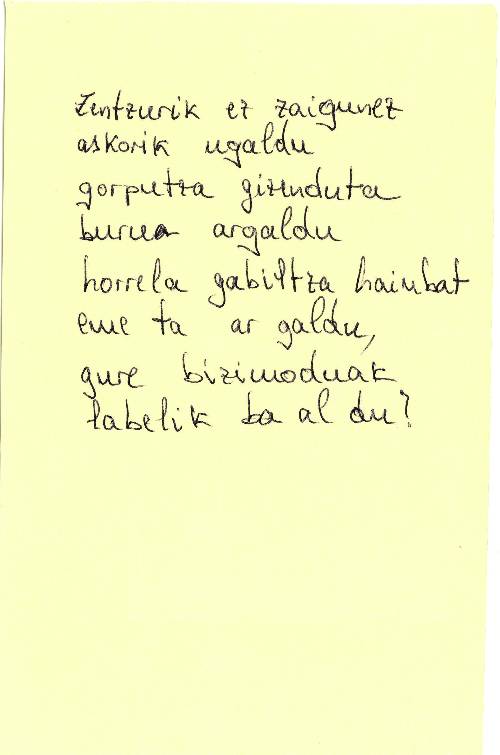 Zentzurik ez zaigunez
askorik ugaldu
gorputza gizenduta
burua argaldu
horrela gabiltza hainbat
eme ta ar galdu,
gure bizimoduak
labelik ba al du?